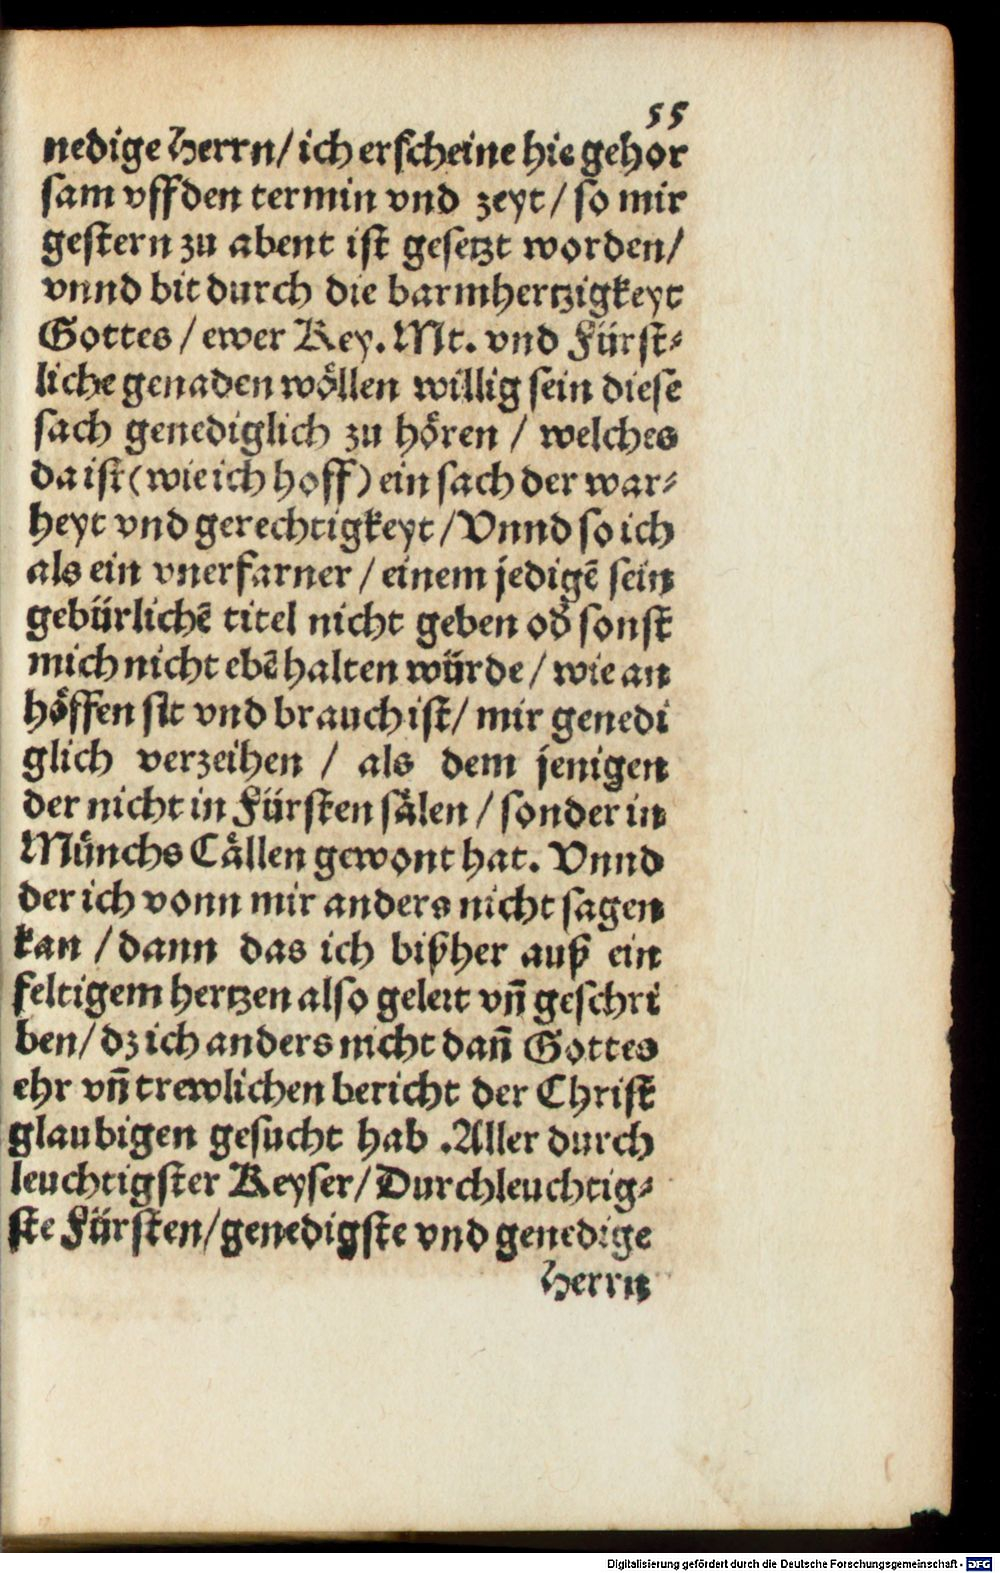 55
nedige Herrn/ ich erscheine hie gehor
sam vffden termin vnd zeyt/ so mir
gestern zu abent ist gesetzt worden/
vnnd bit durch die barmhertzigkeyt
Gottes/ ewer Key. Mt. vnd Fürst⸗
liche genaden wöllen willig sein diese
sach genediglich zu hören/ welches
da ist (wie ich hoff) ein sach der war⸗
heyt vnd gerechtigkeyt/ Vnnd so ich
als ein vnerfarner/ einem jedigẽ sein
gebürlichẽ titel nicht geben od̕ sonst
mich nicht ebẽ halten würde/ wie an
höffen sit vnd brauch ist/ mir genedi
glich verzeihen/ als dem jenigen
der nicht in Fürsten sälen/ sonder in
Münchs Cällen gewont hat. Vnnd
der ich vonn mir anders nicht sagen
kan/ dann das ich bißher auß ein
feltigem hertzen also gelert vñ geschri
ben/ dz ich anders nicht dañ Gottes
ehr vñ trewlichen bericht der Christ
glaubigen gesucht hab. Aller durch
leuchtigster Keyser/ Durchleuchtig⸗
ste Fürsten/ genedigste vnd genedige
Herrn
Digitalisierung gefördert durch die Deutsche Forschungsgemeinschaft - DFG